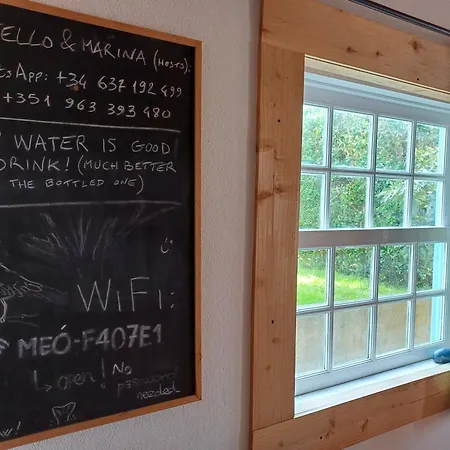 ELLO & MARINA (HOSTS):
tsApp: +34 637 192 499
+351 963 393 480
WATER IS GOOD
DRINK! (MUCH BETTER
THE BOTTLED ONE)
WiFi:
MEO-F407E1
↳ open! No
password
needed